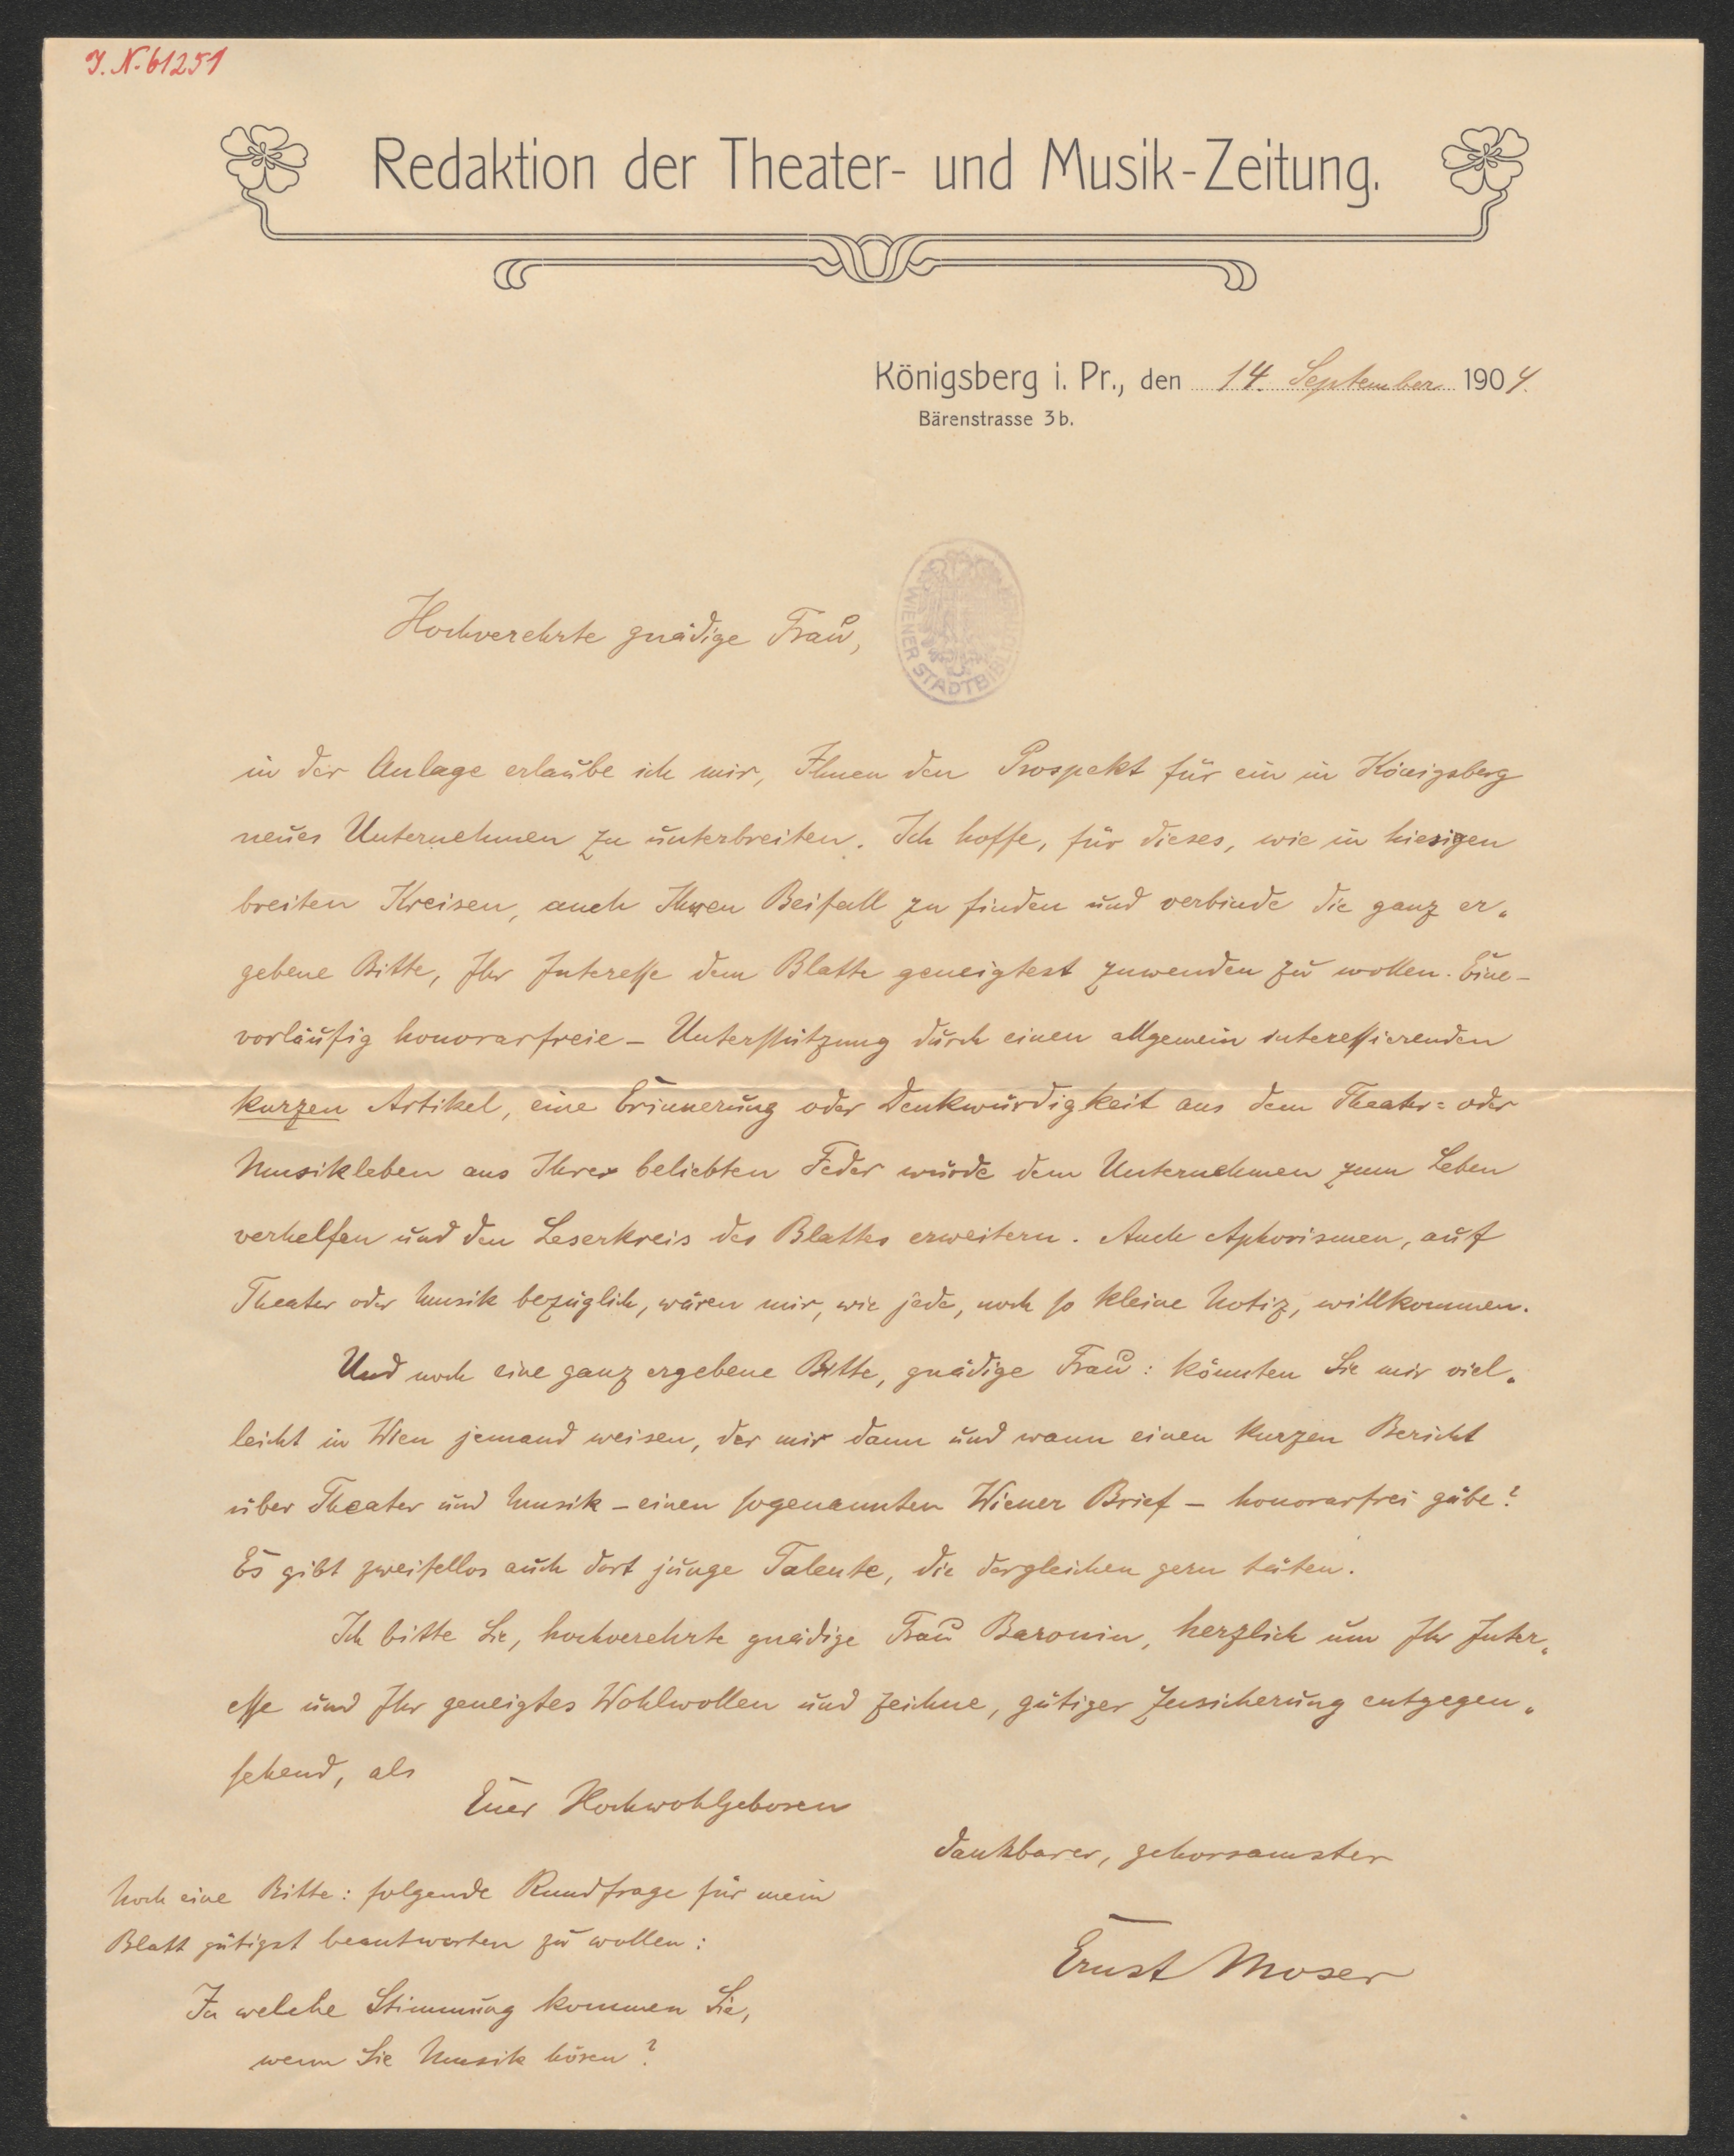 J. N. 61251
Redaktion der Theater- und Musik-Zeitung.
Königsberg i. Pr., den 14. September 1904.
Bärenstrasse 3b.
WIENER STADTBIBL
Hochverehrte gnädige Frau,
in der Anlage erlaube ich mir, Ihnen den Prospekt für ein in Königsberg
neues Unternehmen zu unterbreiten. Ich hoffe, für dieses, wie in hiesigen
breiten Kreisen, auch Ihren Beifall zu finden und verbinde die ganz er-
gebene Bitte, Ihr Interesse dem Blatte geneigtest zuwenden zu wollen. Eine –
vorläufig honorarfreie – Unterstützung durch einen allgemein interessierenden
kurzen Artikel, eine Erinnerung oder Denkwürdigkeit aus dem Theater= oder
Musikleben aus Ihrer beliebten Feder würde dem Unternehmen zum Leben
verhelfen und den Leserkreis des Blattes erweitern. Auch Aphorismen, auf
Theater oder Musik bezüglich, wären mir, wie jede, noch so kleine Notiz, willkommen.
Und noch eine ganz ergebene Bitte, gnädige Frau: könnten Sie mir viel-
leicht in Wien jemand weisen, der mir dann und wann einen kurzen Bericht
über Theater und Musik – einen sogenannten Wiener Brief – honorarfrei gäbe?
Es gibt zweifellos auch dort junge Talente, die dergleichen gern täten.
Ich bitte Sie, hochverehrte gnädige Frau Baronin, herzlich um Ihr Inter-
esse und Ihr geneigtes Wohlwollen und zeichne, gütiger Zusicherung entgegen-
sehend, als
Euer Hochwohlgeboren
dankbarer, gehorsamster
Ernst Moser
Noch eine Bitte: folgende Rundfrage für mein
Blatt gütigst beantworten zu wollen:
In welche Stimmung kommen Sie,
wenn Sie Musik hören?